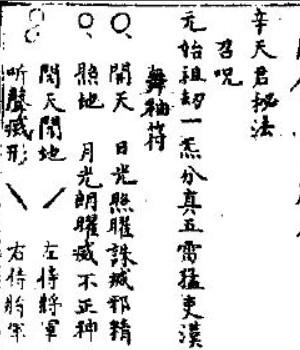 辛天君秘法
召咒
元始祖刼一炁分真五雷猛吏漢
舞袖符
〇、開天 日光照曜誅滅邪精
〇、照地 月光朗曜滅不正神
開天闢地 左侍將軍
听聲滅形 右侍將軍